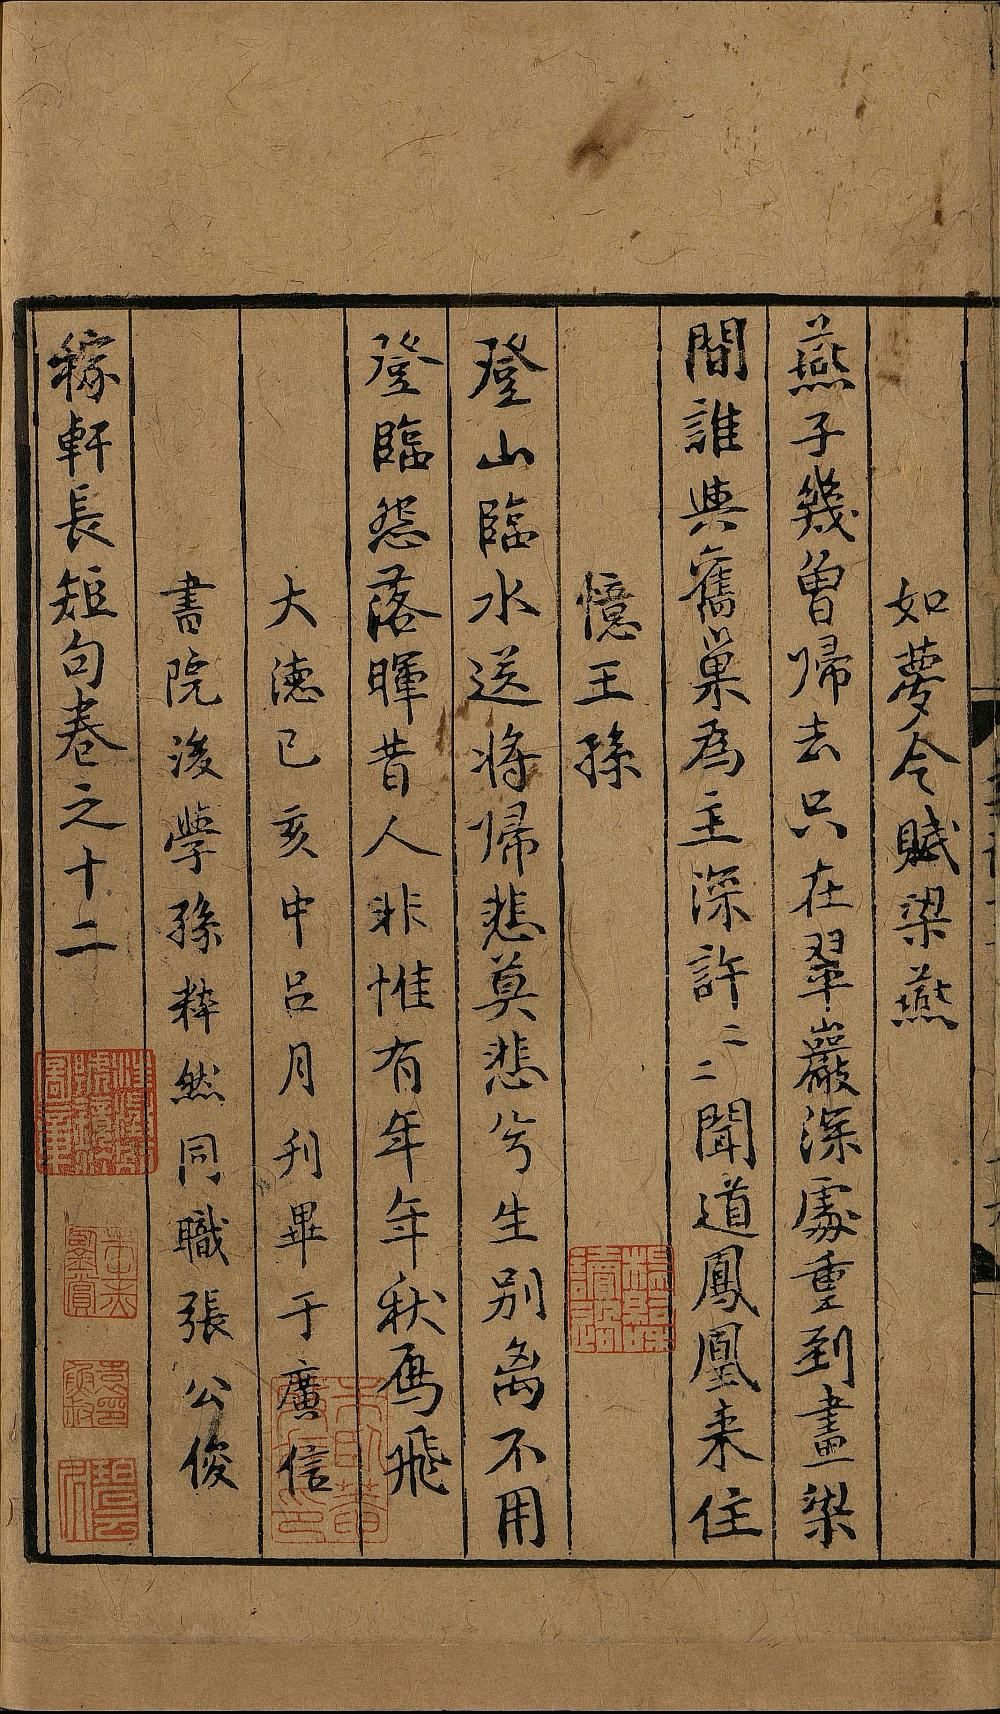 如夢令賦梁燕
燕子幾曾歸去只在翠巖深處重到畫梁
間誰與舊巢為主深許二二聞道鳳凰来住
憶王孫
登山臨水送將歸悲莫悲兮生别离不用
登臨怨落暉昔人非惟有年年秋鴈飛
大德己亥中吕月刋畢于廣信
書院後學孫粹然同職張公俊
稼軒長短句卷之十二